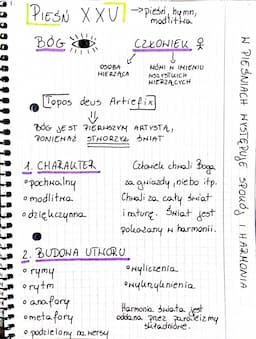 PIEŚŃ XXV → pieśń, hymn,
modlitwa
BÓG CZŁOWIEK
OSOBA
WIERZĄCA
MÓWI W IMIENIU
WSZYSTKICH
WIERZĄCYCH
Topos deus Artifex
BÓG JEST PIERWSZYM ARTYSTĄ,
PONIEWAŻ STWORZYŁ ŚWIAT
1. CHARAKTER
• pochwalny
• modlitwa
• dziękczynna
Człowiek chwali Boga
za gwiazdy, niebo itp.
Chwali za cały świat
i naturę. Świat jest
pokazany w harmonii.
2. BUDOWA UTWORU
• rymy
• rytm
• anafory
• metafory
• podzielony na wersy
• wyliczenia
• wykrzyknienia
Harmonia świata jest
oddana przez paralelizmy
składniowe.
W PIEŚNIACH WYSTĘPUJE SPOKÓJ I HARMONIA